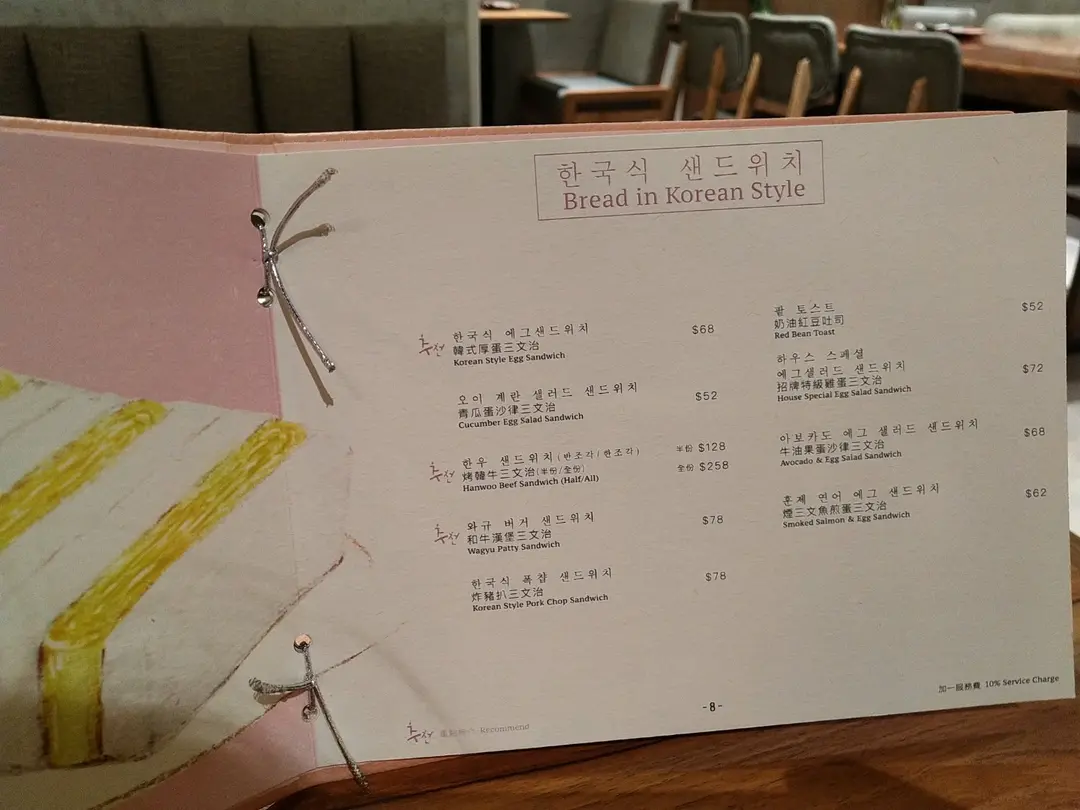 한국식 샌드위치
Bread in Korean Style
추천 한국식 에그샌드위치 $68
韓式厚蛋三文治
Korean Style Egg Sandwich
오이 계란 샐러드 샌드위치 $52
青瓜蛋沙律三文治
Cucumber Egg Salad Sandwich
추천 한우 샌드위치 (반조각/한조각) 半份 $128
烤韓牛三文治(半份/全份) 全份 $258
Hanwoo Beef Sandwich (Half/All)
추천 와규 버거 샌드위치 $78
和牛漢堡三文治
Wagyu Patty Sandwich
한국식 폭챱 샌드위치 $78
炸豬扒三文治
Korean Style Pork Chop Sandwich
팥 토스트 $52
奶油紅豆吐司
Red Bean Toast
하우스 스페셜
에그샐러드 샌드위치 $72
招牌特級雞蛋三文治
House Special Egg Salad Sandwich
아보카도 에그 샐러드 샌드위치 $68
牛油果蛋沙律三文治
Avocado & Egg Salad Sandwich
훈제 연어 에그 샌드위치 $62
煙三文魚煎蛋三文治
Smoked Salmon & Egg Sandwich
加一服務費 10% Service Charge
-8-
추천 Recommend